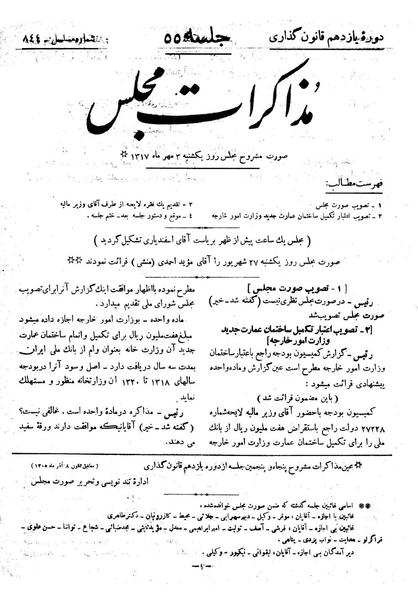 دورهٔ یازدهم قانون گذاری
جلسه ۵۵
شماره مسلسل ۸۴۴
مذاکرات مجلس
صورت مشروح مجلس روز یکشنبه ۳ مهر ماه ۱۳۱۷
فهرست مطالب:
۱ - تصویب صورت مجلس
۲ - تصویب اعتبار تکمیل ساختمان عمارت جدید وزارت امور خارجه
۳ - تقدیم یک فقره لایحه از طرف آقای وزیر مالیه
۴ - موقع و دستور جلسه بعد - ختم جلسه
(مجلس یک ساعت پیش از ظهر بریاست آقای اسفندیاری تشکیل گردید)
صورت مجلس روز یکشنبه ۲۷ شهریور را آقای مؤید احمدی (منشی) قرائت نمودند
[۱ - تصویب صورت مجلس]
رئیس - در صورت مجلس نظری نیست؟ (گفته شد - خیر)
صورت مجلس تصویب شد
[۲ - تصویب اعتبار تکمیل ساختمان عمارت جدید
وزارت امور خارجه]
رئیس - گزارش کمیسیون بودجه راجع باعتبار ساختمان
وزارت امور خارجه مطرح است عین گزارش و ماده واحده
پیشنهادی قرائت میشود:
(باین مضمون قرائت شد)
کمیسیون بودجه با حضور آقای وزیر مالیه لایحه شماره
۲۷۲۲۸ دولت راجع باستقراض هفت ملیون ریال از بانک
ملی را برای تکمیل ساختمان عمارت وزارت امور خارجه
مطرح نموده با اظهار موافقت اینک گزارش آنرا برای تصویب
مجلس شورای ملی تقدیم میدارد.
ماده واحده - بوزارت امور خارجه اجازه داده میشود
مبلغ هفت ملیون ریال برای تکمیل و اتمام ساختمان عمارت
جدید آن وزارت خانه بعنوان وام از بانک ملی ایران
بمدت سه سال دریافت دارد - اصل و سود آنرا در بودجه
سالهای ۱۳۱۸ تا ۱۳۲۰ آن وزارتخانه منظور و مستهلک
نماید.
رئیس - مذاکره در مادهٔ واحده است. مخالفی نیست؟
(گفته شد - خیر) آقایانیکه موافقت دارند ورقهٔ سفید
می دهند.
عین مذاکرات مشروح پنجاه و پنجمین جلسه از دوره یازدهم قانون گذاری
(مطابق قانون ۸ آذر ماه ۱۳۰۵)
اداره تند نویسی و تحریر صورت مجلس
اسامی غائبین جلسه گذشته که ضمن صورت مجلس خوانده شده:
غائبین با اجازه - آقایان: موقر - وکیل - دبیر سهرابی - جلائی - محیط - کازرونیان - دکتر طاهری
غائبین بی اجازه - آقایان: فرشی - آصف - تولیت - امیر ابراهیمی - معدل - مؤید ثابتی - مجد ضیائی - شجاع - توانا - حسن علوی -
قراگزلو - هدایت - نواب یزدی - پناهی.
دیر آمدگان بی اجازه - آقایان: لیقوانی - نیکپور - وکیلی.
-۱-